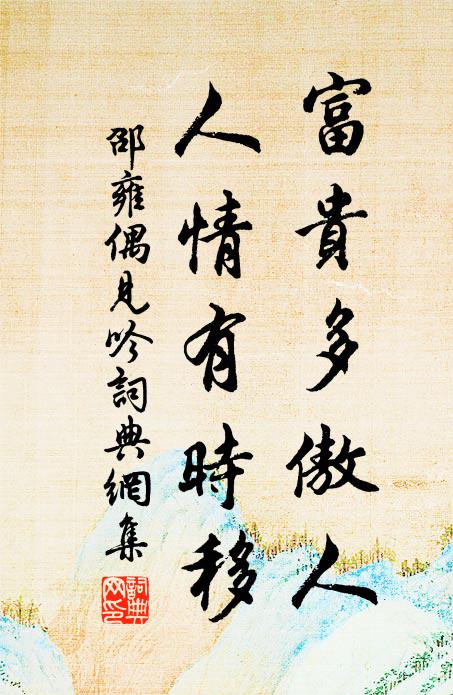 富貴多傲人
人情有時移
邵雍偶見吟詞典網集
詞典網印